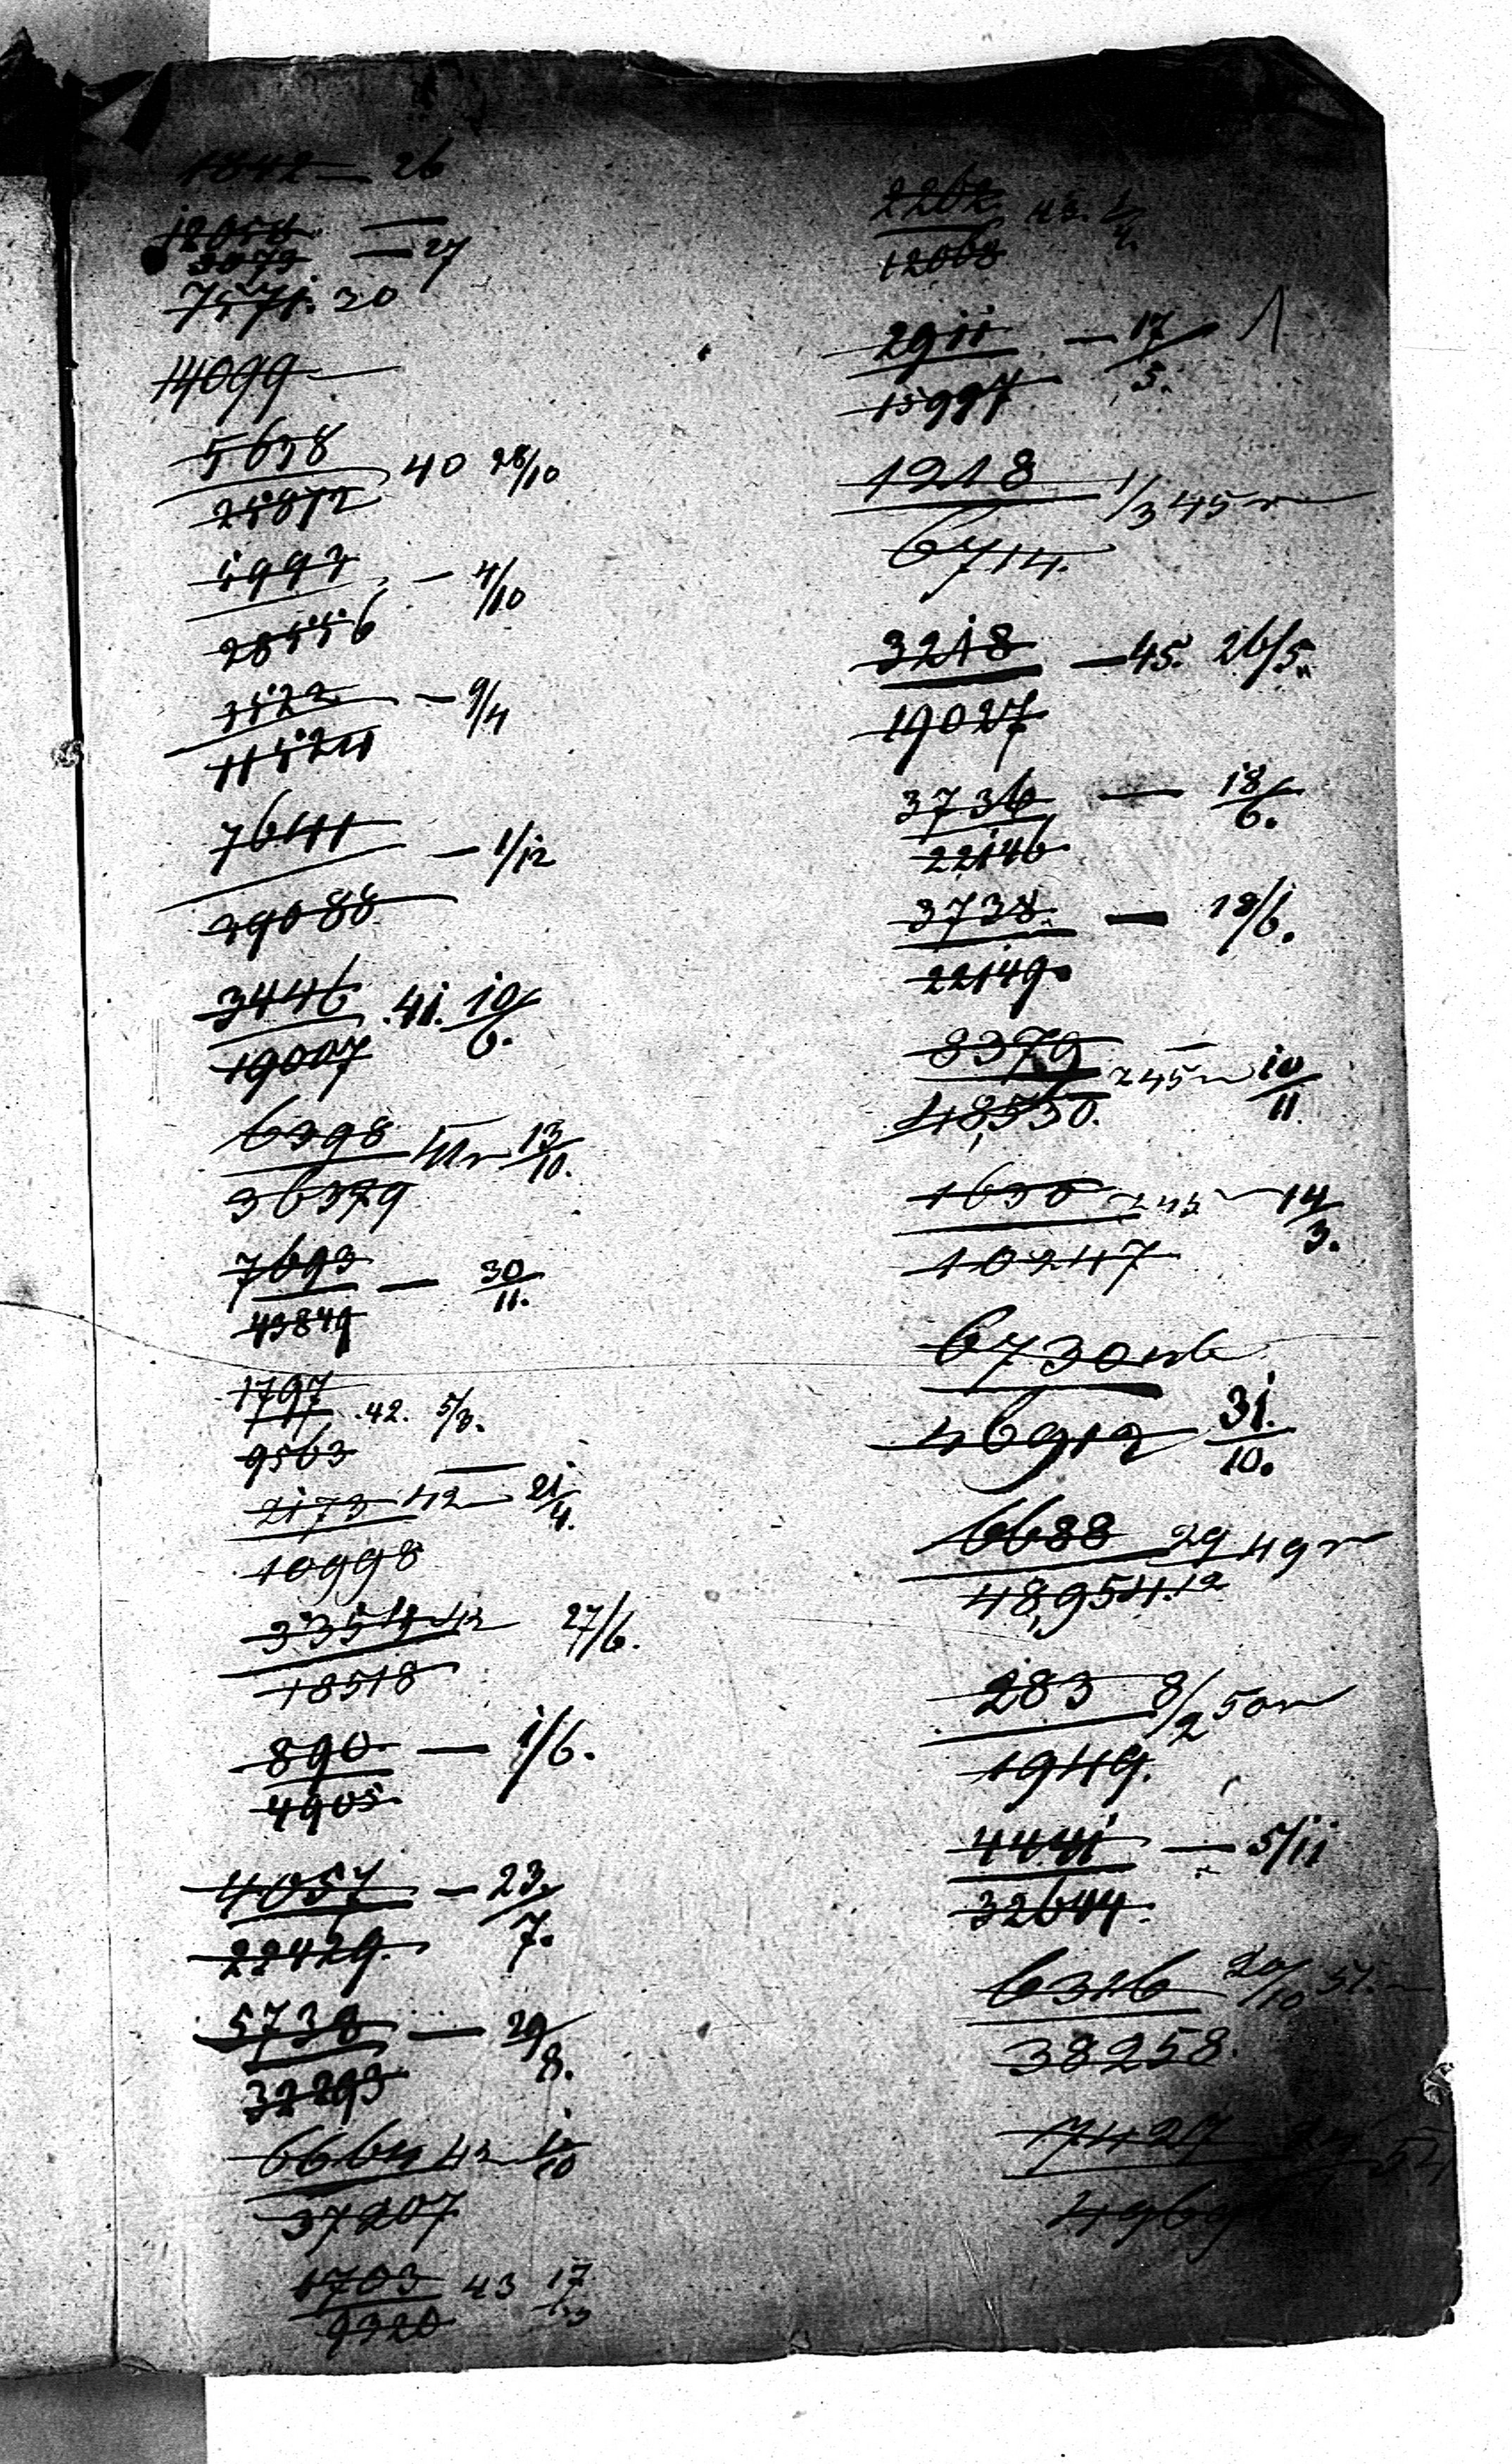 1842 — 26
12054 —
3073 — 27
7571. 30
14099
5638 40 28/10
25872
4993 — 4/10
28556
3522 — 9/4
11524
7641 — 1/12
39088
3446 .41. 10/6.
19007
6398 41 г 13/10.
36379
7693 — 30/11.
43849
1797 .42. 5/3.
9563
2173 42 — 21/4.
10998
3354 42 27/6.
18518
890 — 1/6.
4905
4057 — 23/7.
22429.
5738 — 29/8.
32293
6664 42
37207
1703 43 17
9320
2262 43.
12668
2911 — 17/5.
15997
1218 1/3 45 г
6714.
3218 — 45. 26/5.
19027
3736 — 18/6.
22146
3738. — 18/6.
22149.
8379 — 245 10/11
48,550.
1630 245 — 14/3.
10247
6730
46912 31./10.
6688 29/12 49 г
48,954.
283 8/2 50 г
1949.
4441 — 5/11
32644.
6326 20/10 51.
38258.
7427